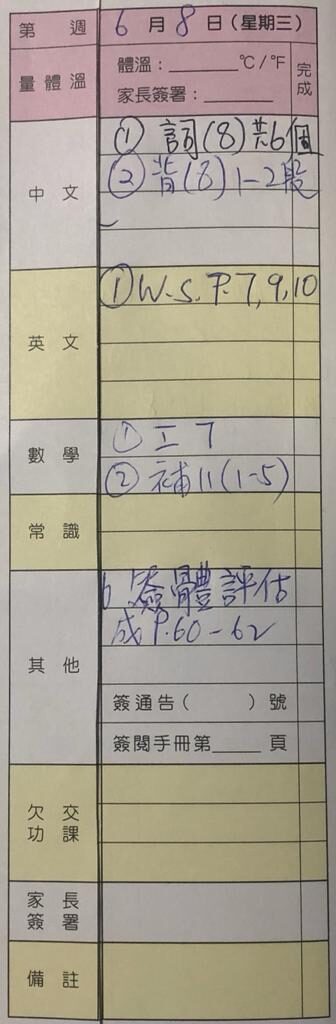 第 週 6月8日(星期三)
量體溫 體溫：______ ℃/℉ 完成
家長簽署：______
中文 ① 詞(8)共6個
② 背(8)1-2段
英文 ① W.S. P.7,9,10
數學 ① 工7
② 補11(1-5)
常識
其他 簽體評估
成P.60-62
簽通告( )號
簽閱手冊第____頁
欠交功課
家長簽署
備註